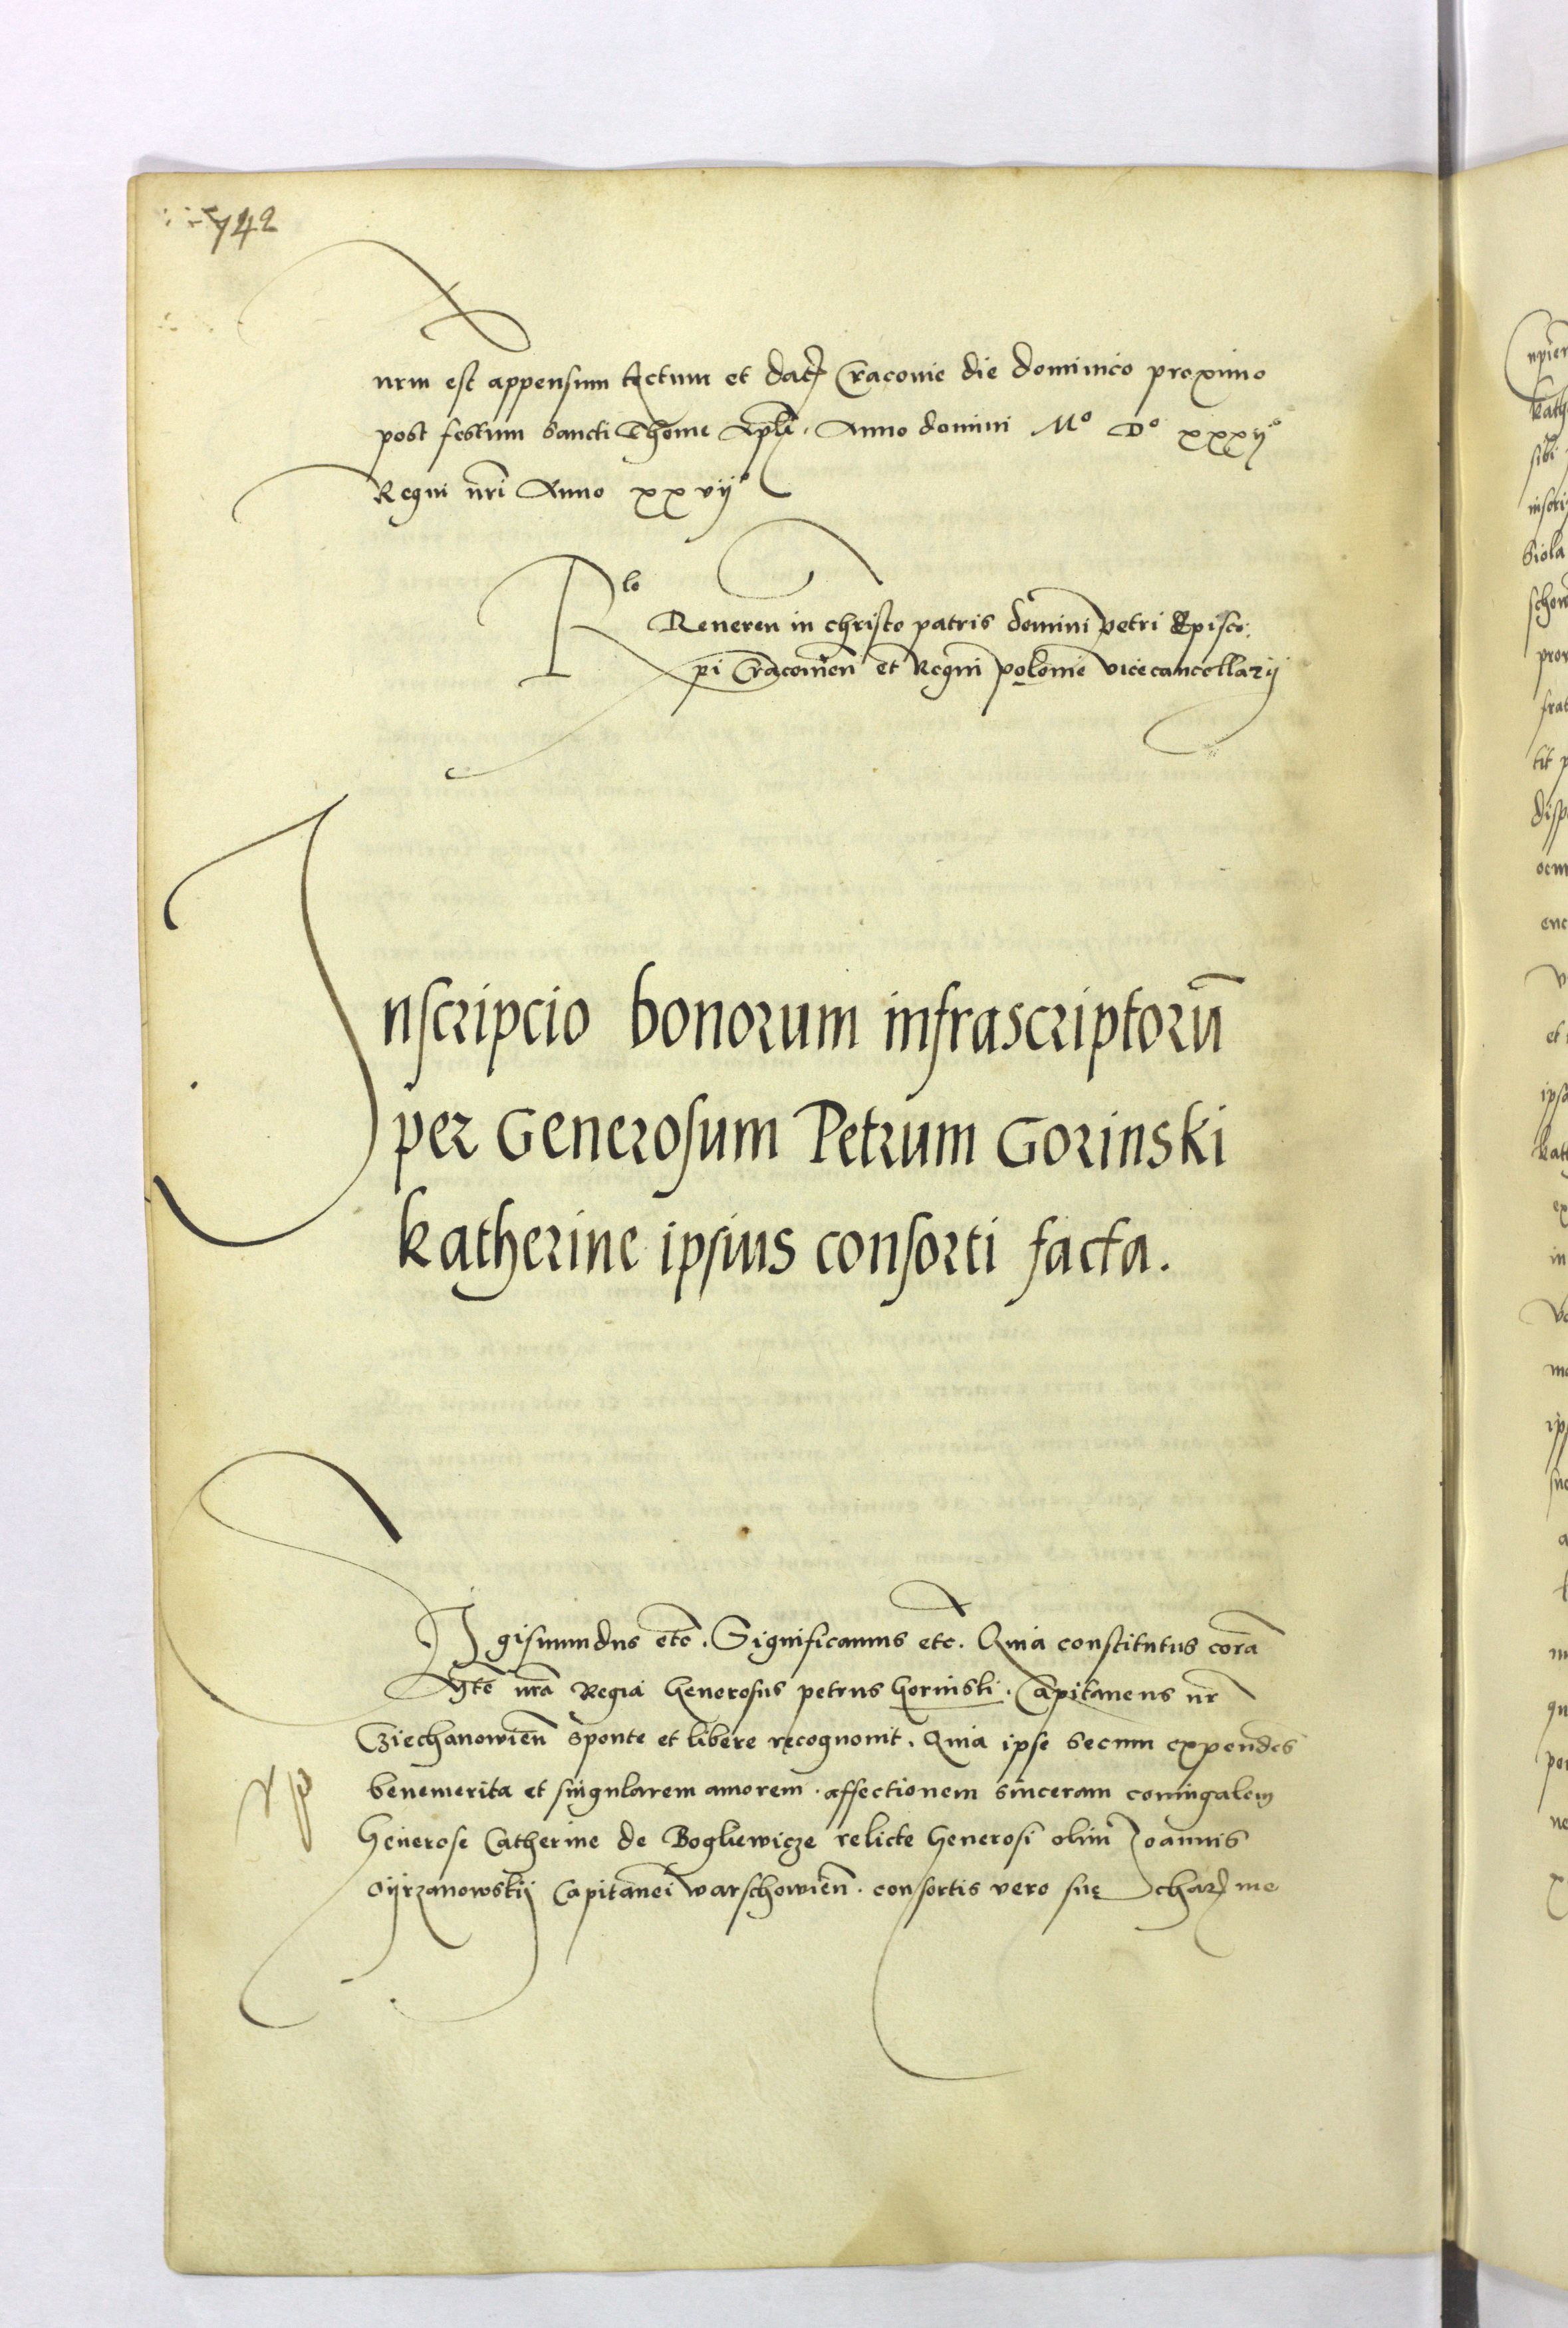 742
nrm est appensum Actum et datum Cracovie die dominico proximo
post festum Sancti Thome Apli. Anno domini Mo Do xxxijo
Regni nri Anno xxvijo
Rlo Reveren in christo patris domini petri Episco-
pi Cracovien et Regni polonie vicecancellarij
Inscripcio bonorum infrascriptorū
per Generosum Petrum Gorinski
Katherine ipsius consorti facta.
Sigismundus etc. Significamus etc. Quia constitutus corā
Mte nrā Regia Generosus petrus Gorinski. Capitaneus nr
Cziechanowien sponte et libere recognovit. Quia ipse secum expendēs
benemerita et singularem amorem. affectionem sinceram coniugalem
Generose Catherine de Boglewicze relicte Generosi olim Joannis
Oyrzanowskij Capitanei warschowien. consortis vero suę